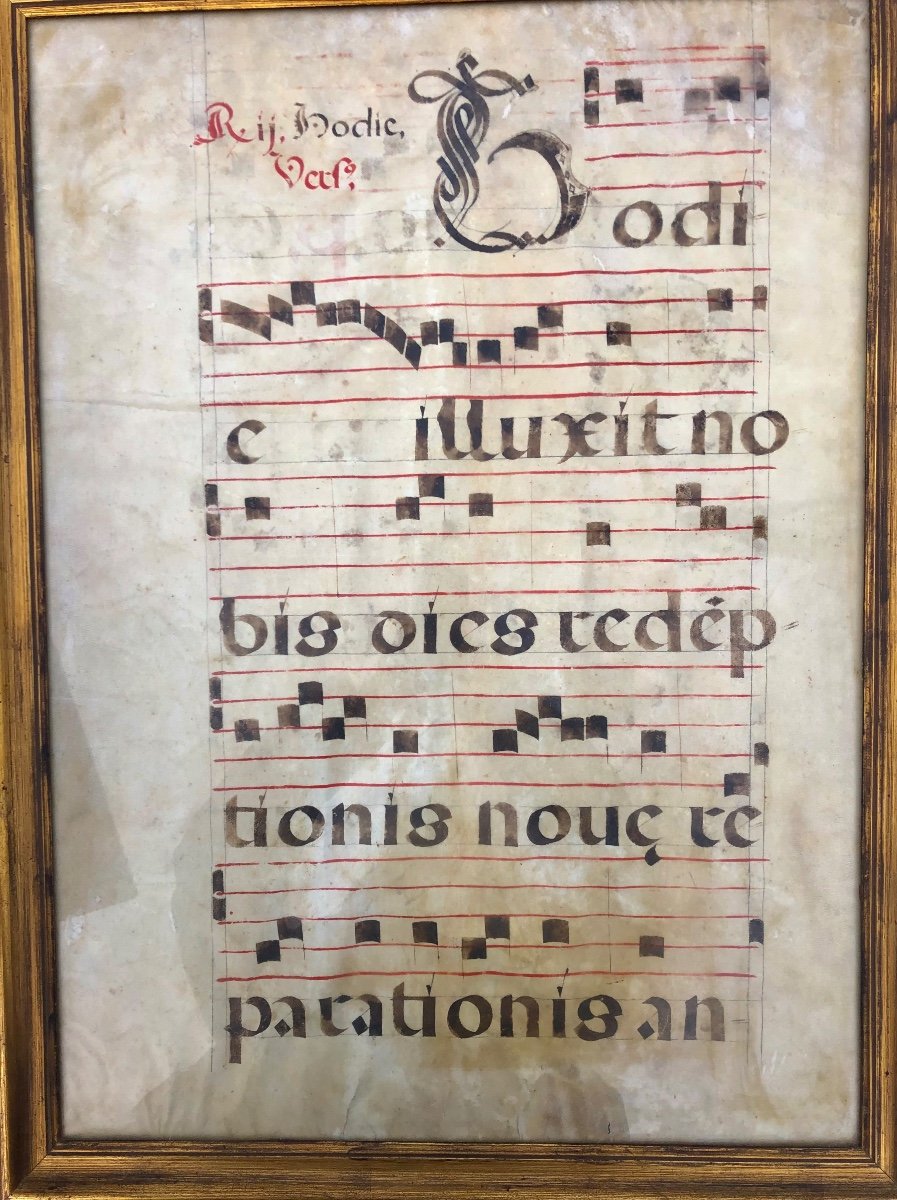 R. ij. Hodie,
Vers.
Hodi
e illuxit no
bis dies redẽp
tionis nouę re
parationis an